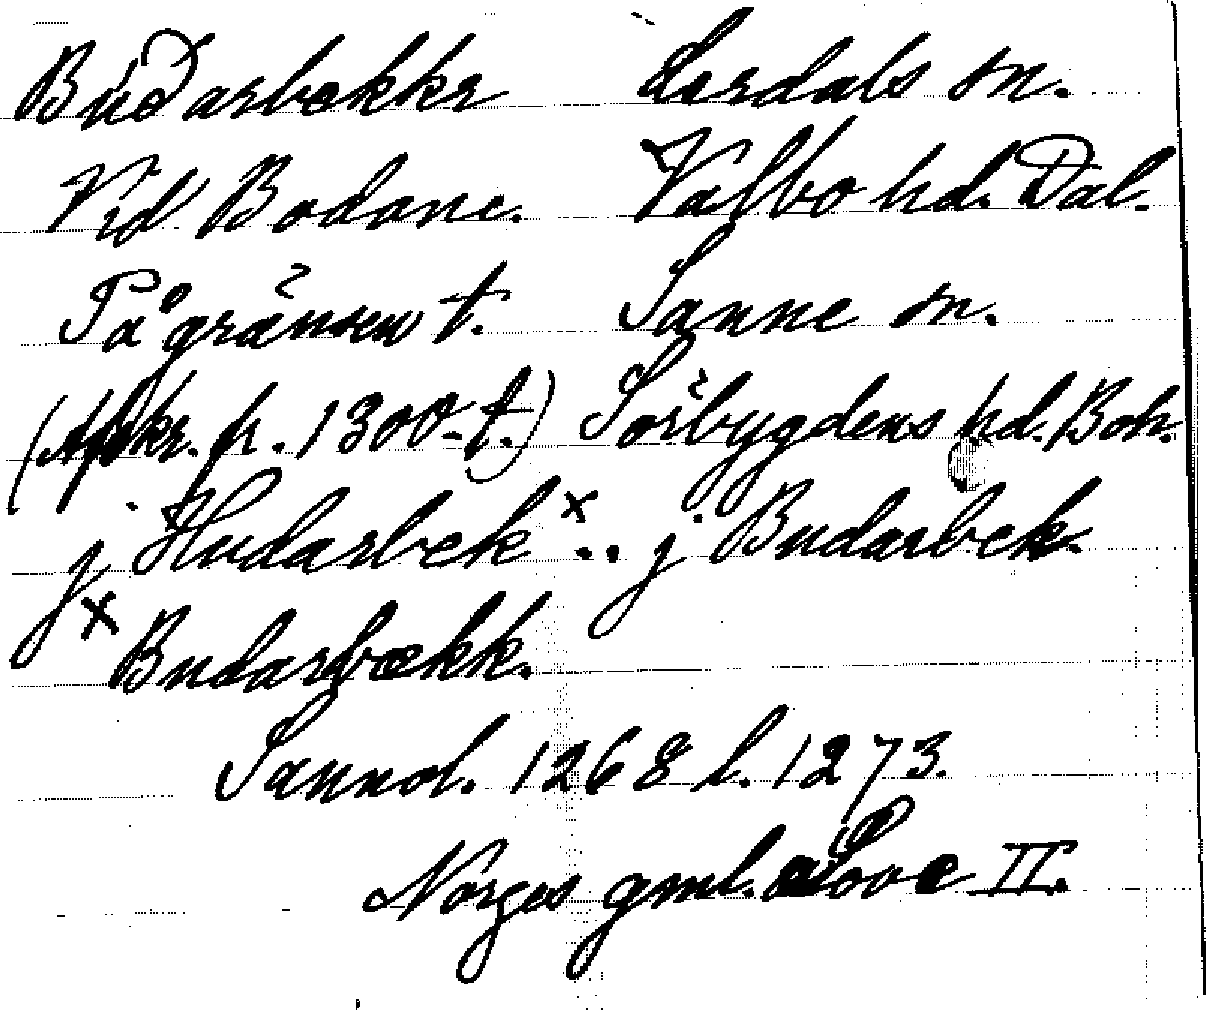 Búðarbekkr Lerdals sn.
Vid Bodane. Valbo hd. Dal.
På gränsen t. Sanne sn.
(Afskr. fr. 1300-t.) Sörbygdens hd. Boh.
j Hudarbek x .. j Budarbek.
x Budarbækk.
Sannol. 1268 l. 1273.
Norges gml. Love II.